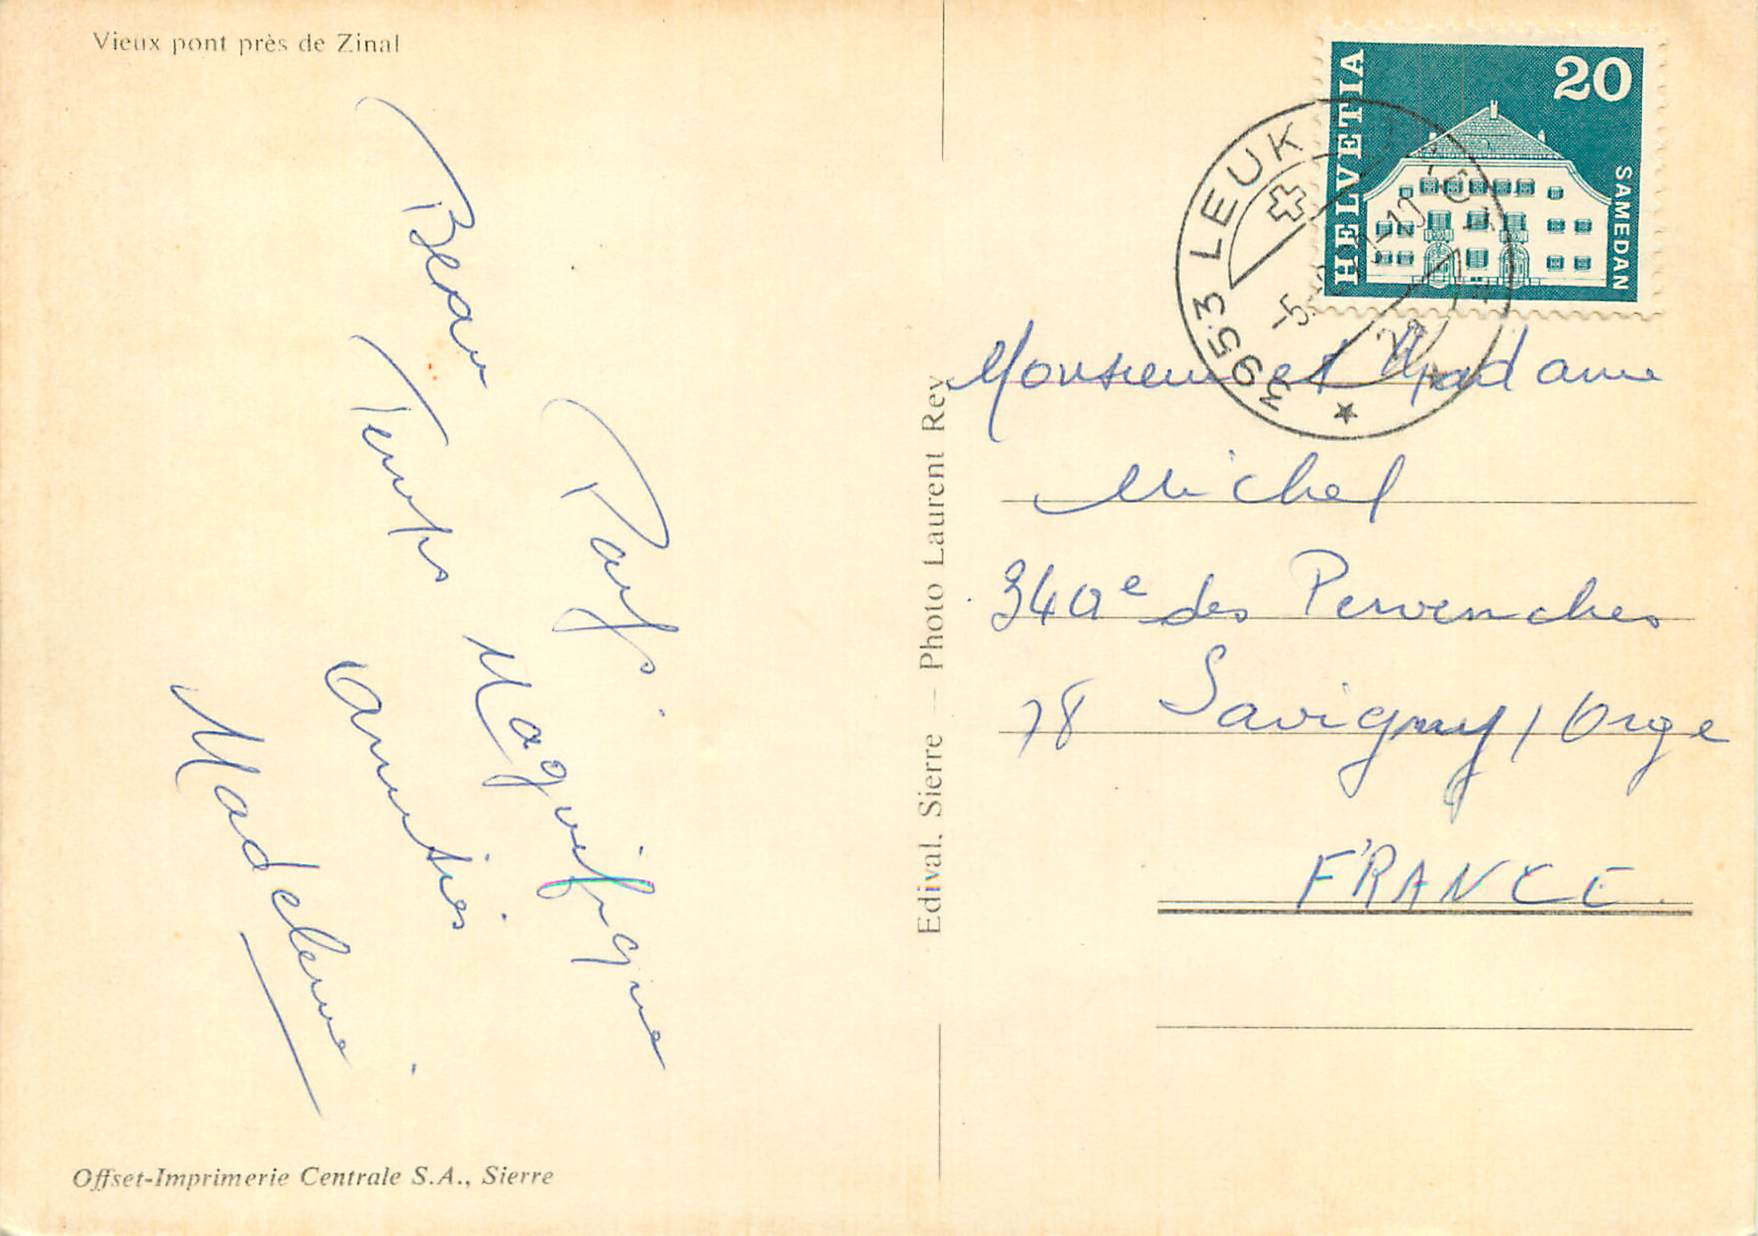 Vieux pont près de Zinal
Pays Magnifique
Beau Temps
Amitiés
Madeleine
Offset-Imprimerie Centrale S.A., Sierre
Edival, Sierre — Photo Laurent Rey
HELVETIA
20
SAMEDAN
3953 LEUK
Monsieur et Madame
Michel
34 des Pervenches
78 Savigny / Orge
FRANCE.